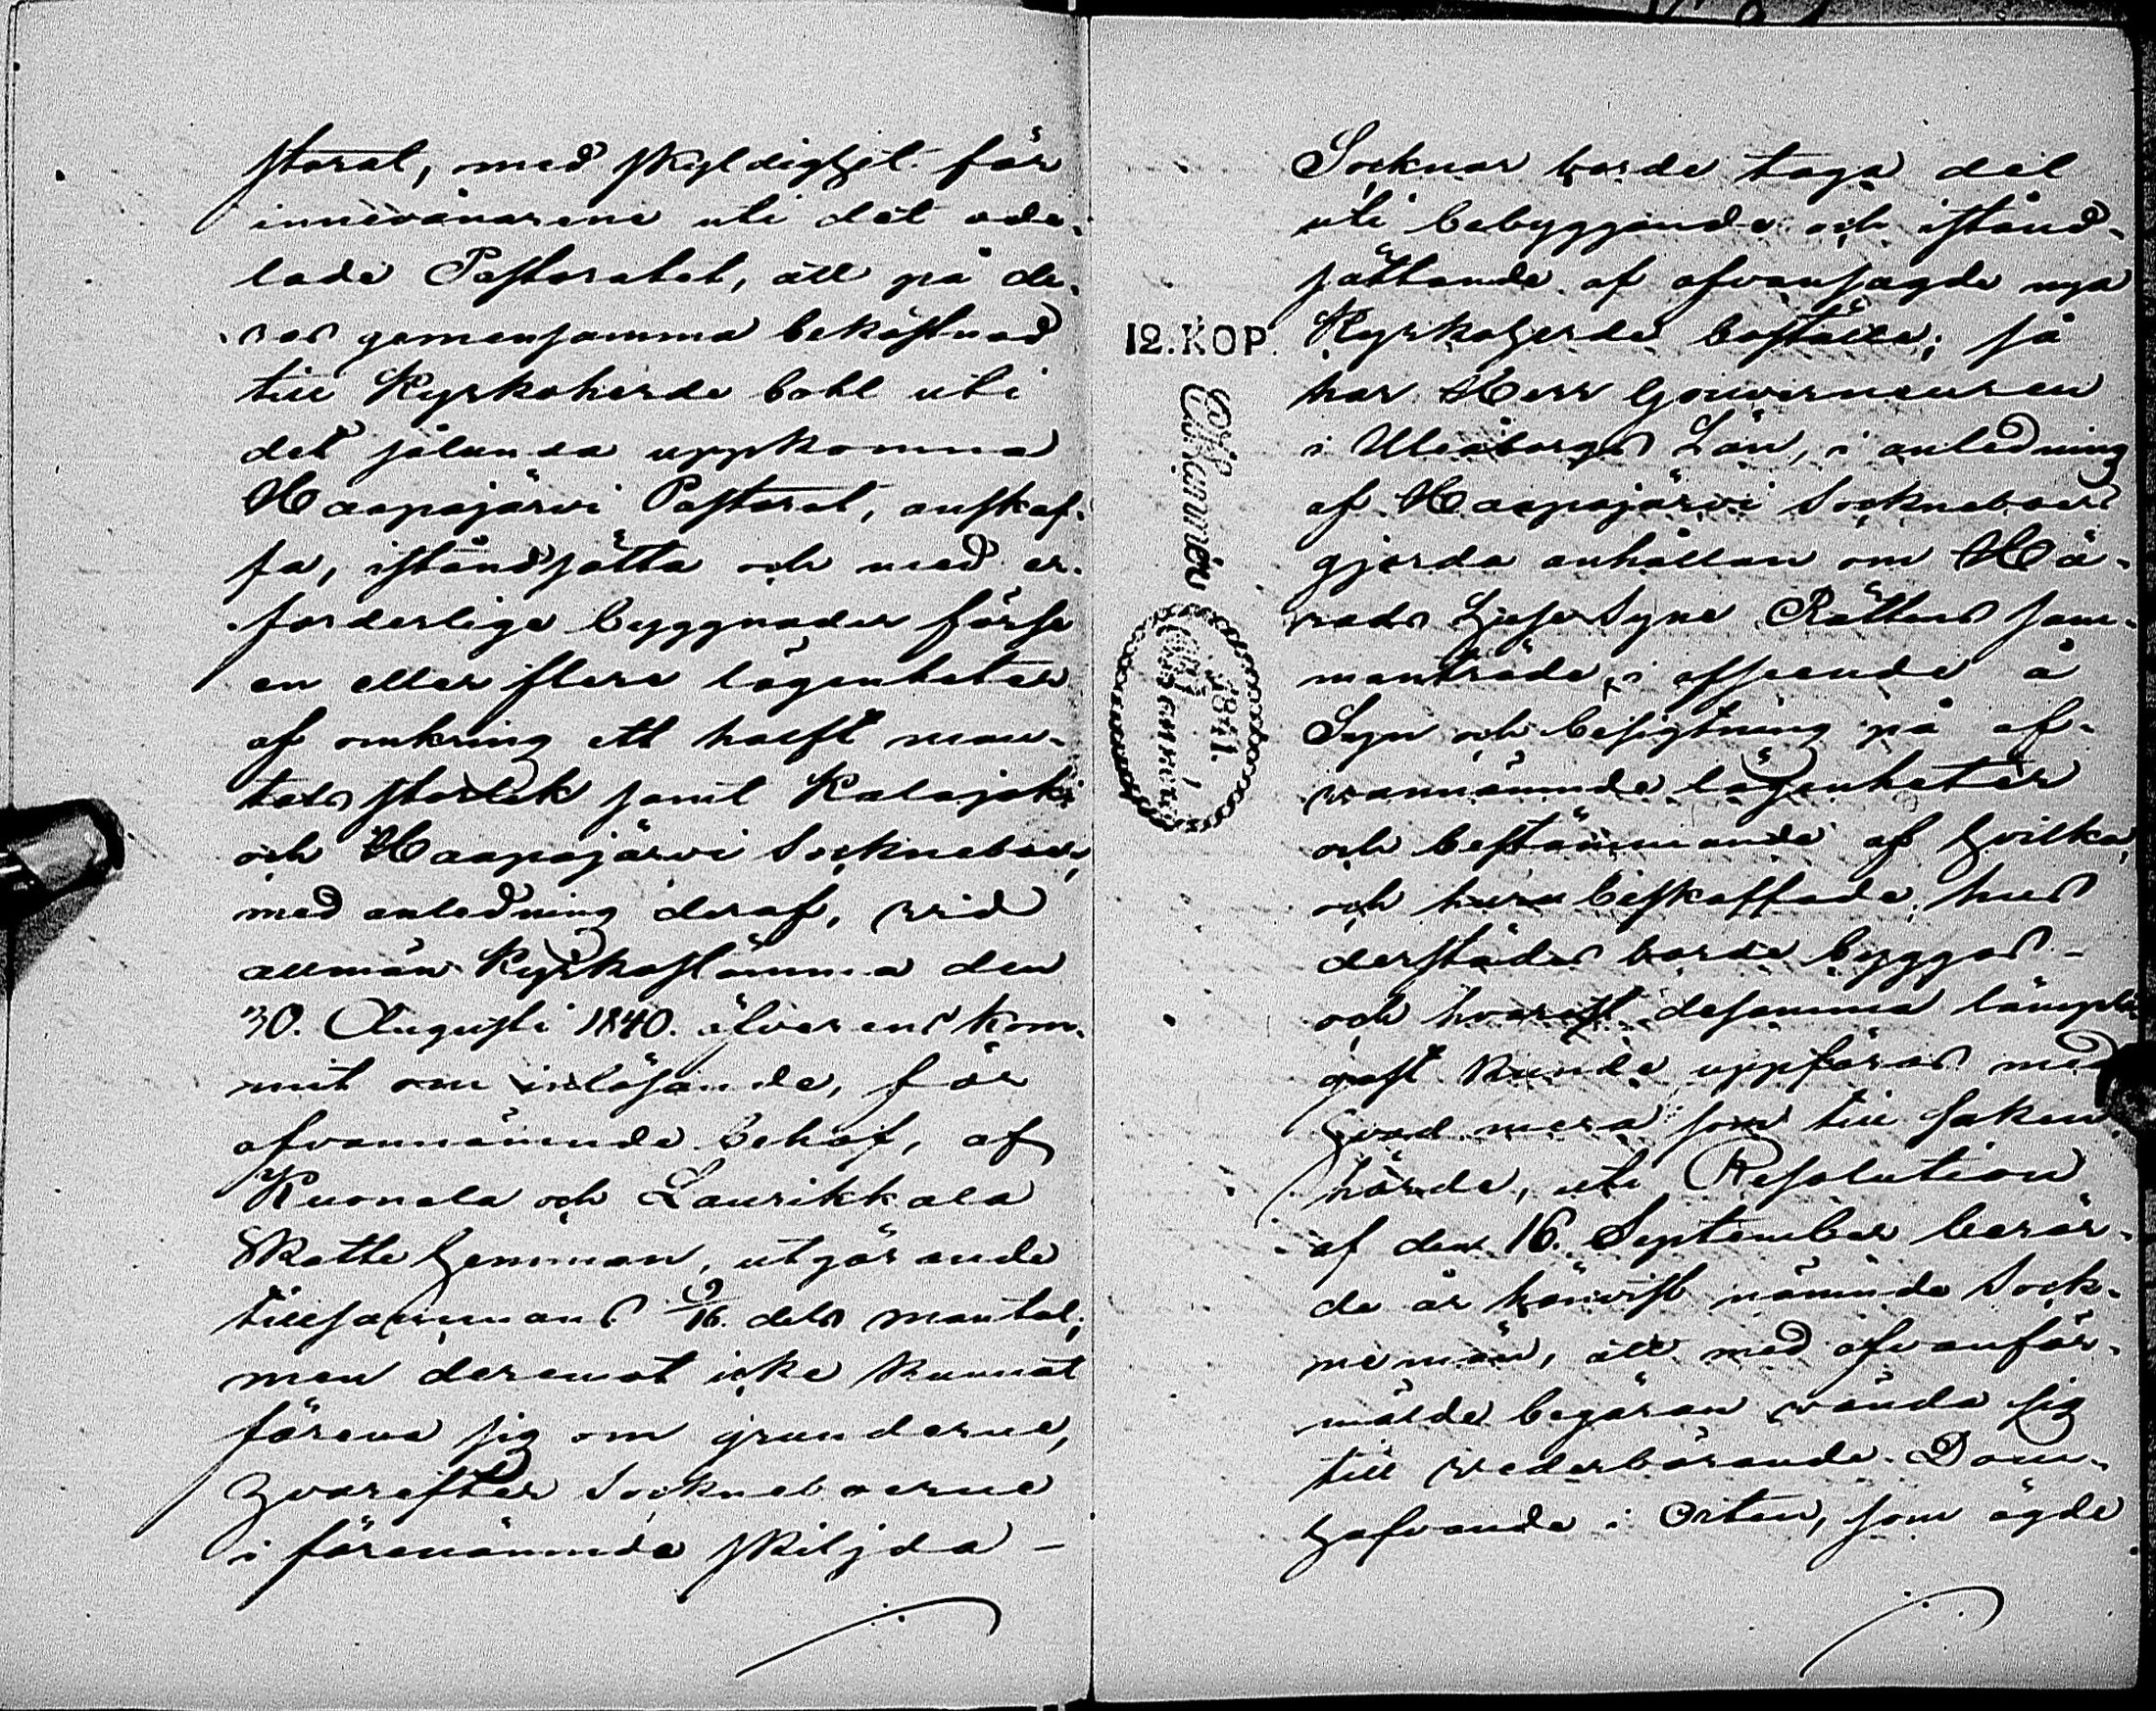 storat, med skyldighet för
innevånarene uti det ode-
lade Pastoratet, att på de-
ras gemensamma bekostnad
till Kyrkoherde bohl uti
det sålunda uppkomna
Haapajärvi Pastorat, anskaf-
fa, iståndsätta och med er-
forderlige byggnader förse
en eller flere lägenheter
af omkring ett halft man-
tals storlek samt Kalajoki
och Haapajärvi Sockneboer,
med anledning deraf, vid
allmän Kyrkostämma den
30. Augusti 1840. öfverens kom-
mit om inlösande, för
ofvannämnde behof, af
Kuonala och Laurikkala
Skatte hemman, utgörande
tillsammans 9/16. dels mantal,
men deremot icke kunnat
förena sig om grunderne,
hvarefter Sockneboerne
i förenämnde skiljda
Socknar borde taga del
uti bebyggande och istånd-
sättande af ofvansagde nya
Kyrkoherde boställe; så
har Herr Gouverneuren
i Uleåborgs Län, i anledning
af Haapajärvi Sockneboers
gjorda anhållan om Hä-
rads Husesyns Rättens sam-
manträde, i afseende å
Syn och besigtning på of-
vannämnde lägenheter
och bestämmande af hvilka,
och huru beskaffade, hus
derstädes borde byggas
och hvarest desamma lämpli-
gast kunde uppföras med
hvad mera som till saken
hörde, uti Resolution
af den 16. September berör-
de år hänvist nämnde Sock-
nemän, att med ofvanför-
mälde begäran vända sig
till vederbörande Dom-
hafvande i Orten, som ägde
12. KOP.
1841.